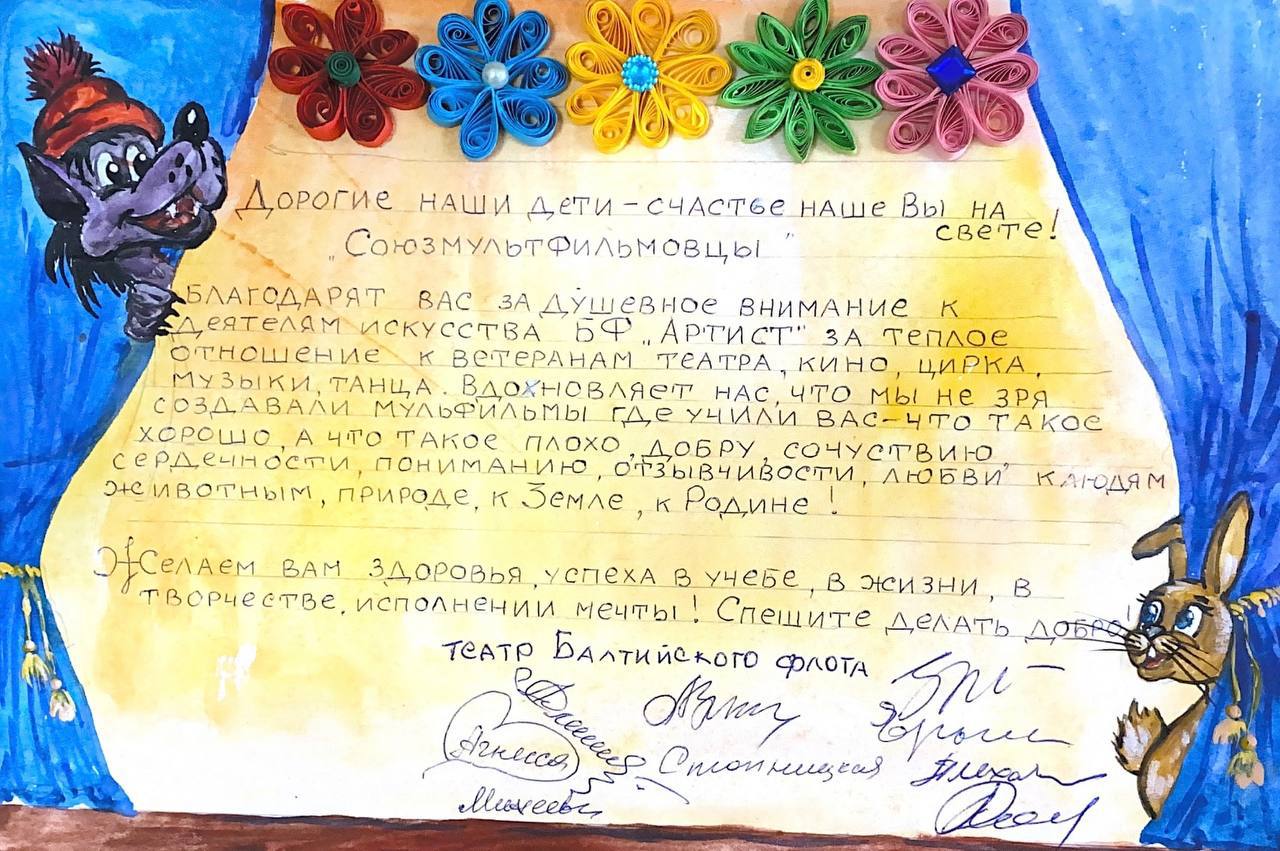 Дорогие наши дети – счастье наше Вы на
свете!
„Союзмультфильмовцы"
Благодарят вас за душевное внимание к
деятелям искусства БФ „Артист" за теплое
отношение к ветеранам театра, кино, цирка,
музыки, танца. Вдохновляет нас, что мы не зря
создавали мульфильмы где учили вас – что такое
хорошо, а что такое плохо, добру, сочуствию
сердечности, пониманию, отзывчивости, любви к людям
животным, природе, к Земле, к Родине!
Желаем вам здоровья, успеха в учебе, в жизни, в
творчестве, исполнении мечты! Спешите делать добро!
театр Балтийского флота
Агнесса
Стопницкая
Михеевы